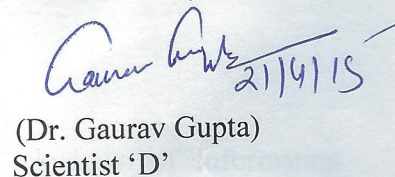 Gaurav Gupta 21/4/15
(Dr. Gaurav Gupta)
Scientist 'D'